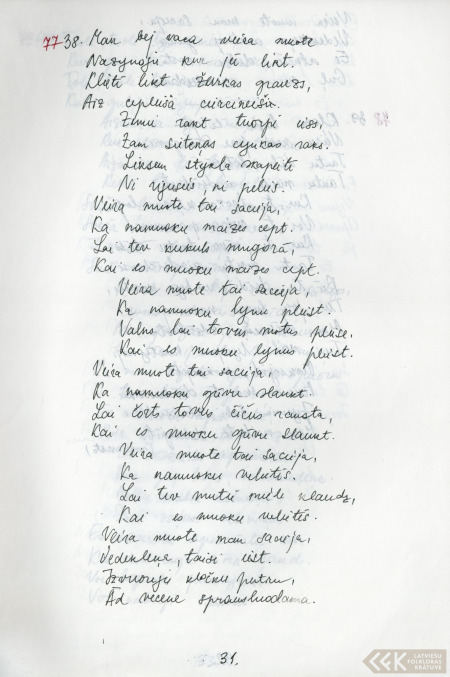 77 38. Man bej vaca veira muote
Nazynoju kur jū likt.
Klietī likt žurkas grauzs,
Aiz cepleiša circineiši.
Zemē rakt tuorpi ēss,
Zam siteņas cyukas raks.
Liksem stykla skapeitī
Ni rijuseis, ni peleis.
Veira muote tai sacieja,
Ka namuoku maizes cept.
Lai tev kukuls mugorā,
Kai es muoku maizes cept.
Veira muote tai sacieja,
Ka namuoku lynu plūst.
Valns lai tovus motus plēse,
Kai es muoku lynus plūst.
Veira muote tai sacieja,
Ka namuoku gūvu slaukt.
Lai čorts tovus čičus rausta,
Kai es muoku gūvu slaukt.
Veira muote tai sacieja,
Ka namuoku veļētīs.
Lai tev mutē mēle klaudz,
Kai es muoku veļētīs.
Veira muote man sacieja,
Vedekleņa, taisi ēst.
Izvuoreju ploču putru,
Ād vecene sprausluodama.
31.
LATVIEŠU
FOLKLORAS
KRĀTUVE